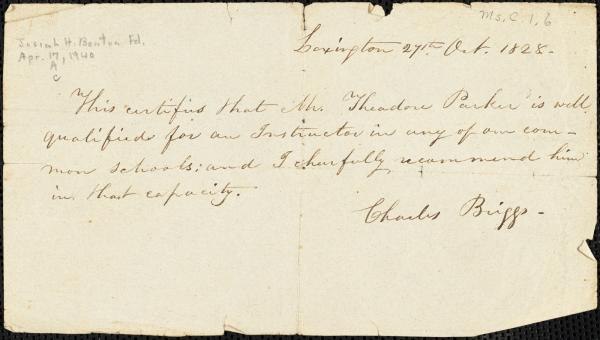 Ms. C. 1. 6
Josiah H. Benton Fd.
Apr. 17, 1940
A
C
Lexington 27th Oct. 1828.
This certifies that Mr. Theodore Parker is well
qualified for an Instructor in any of our com-
mon schools; and I cheerfully recommend him
in that capacity.
Charles Briggs.